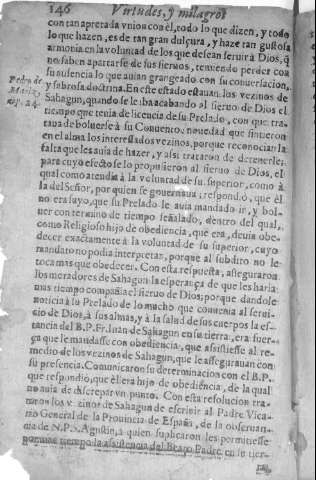 146 Virtudes, y milagros
con tan apretada vnion con èl, todo lo que dizen, y todo
lo que hazen, es de tan gran dulçura, y haze tan gustosa
armonia en la voluntad de los que desean seruir à Dios, q̃
no saben apartarse de sus sieruos, temiendo perder con
su ausencia lo que auian grangeado con su conuersacion,
y sabrosa doctrina. En este estado estauan los vezinos de
Pedro de
Maris,
cap. 24.
Sahagun, quando se les iba acabando al sieruo de Dios el
tiempo que tenia de licencia de su Prelado, con que tra-
taua de boluerse à su Conuento, nouedad que sintieron
en el alma los interessados vezinos, porque reconocian la
falta que les auia de hazer, y assi trataron de detenerle;
para cuyo efecto se lo propusieron al sieruo de Dios, el
qual como atendia à la voluntad de su superior, como à
la del Señor, por quien se gouernaua; respondiò, que èl
no era suyo, que su Prelado le auia mandado ir, y bol-
uer con termino de tiempo señalado, dentro del qual,
como Religioso hijo de obediencia, que era, deuia obe-
decer exactamente à la voluntad de su superior, cuyo
mandato no podia interpretar, porque al subdito no le
toca mas que obedecer. Con esta respuesta, asseguraron
los moradores de Sahagun la esperança de que les haria
mas tiempo compañia el sieruo de Dios; porque dandole
noticia à su Prelado de lo mucho que conuenia al serui-
cio de Dios, à sus almas, y à la salud de sus cuerpos la es-
tancia del B. P. Fr. Iuan de Sahagun en su tierra, era fuer-
ça que le mandasse con obediencia, que assistiesse al re-
medio de los vezinos de Sahagun, que le assegurauan con
su presencia. Comunicaron su determinacion con el B. P.
que respondiò, que èl era hijo de obediēcia, de la qual
no auia de discrepar vn punto. Con esta resolucion tra-
taron los vezinos de Sahagun de escriuir al Padre Vica-
rio General de la Prouincia de España, de la obseruan-
cia de N. P. S. Agustin, à quien suplicaron les permitiesse
por mas tiempo la assistencia del Beato Padre en su tier-